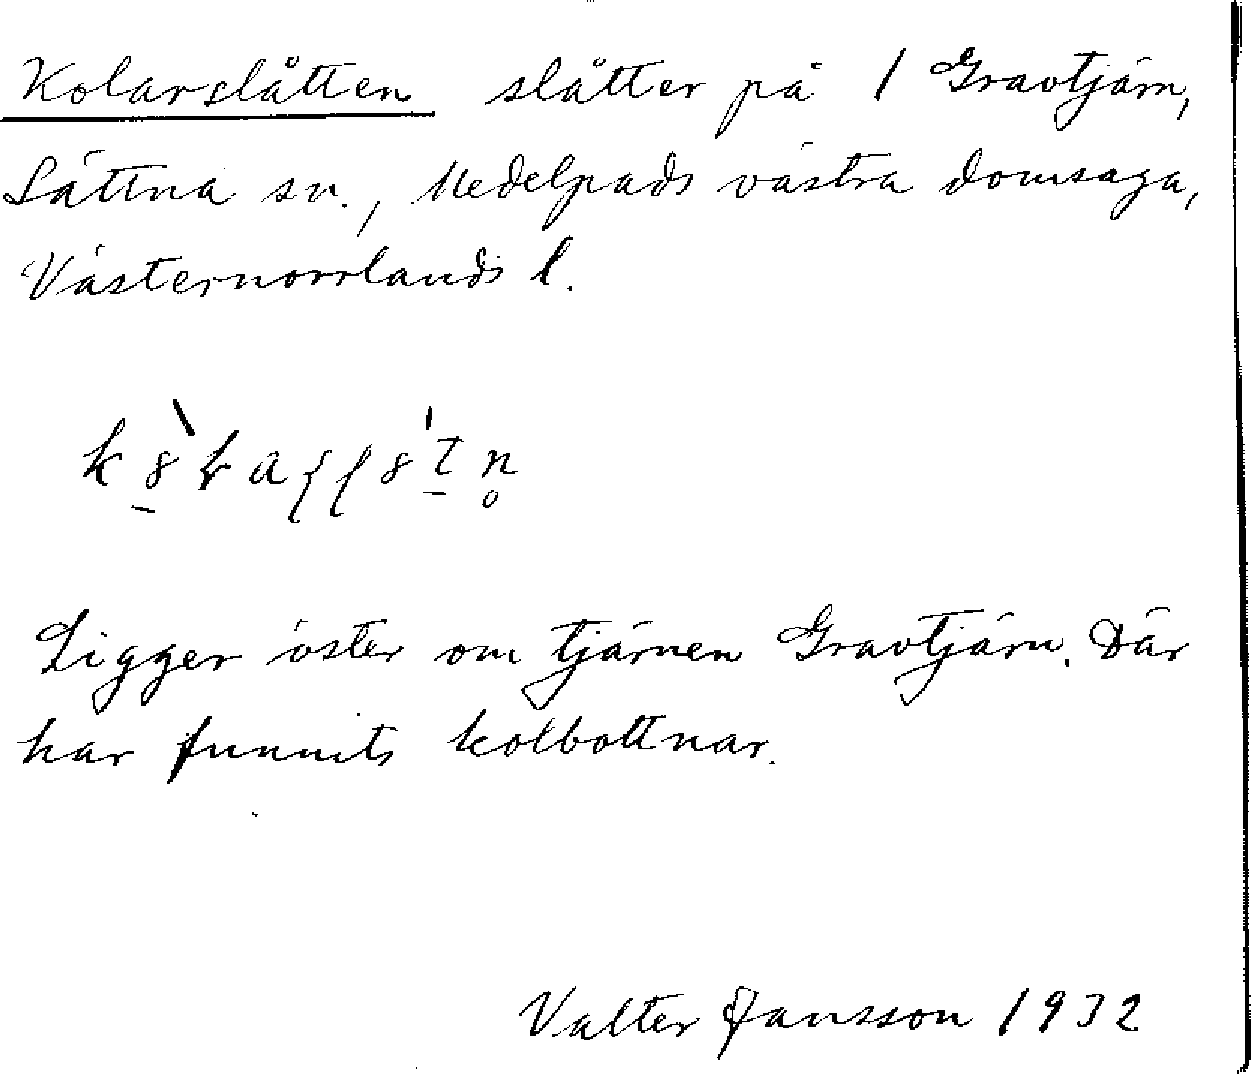 Kolarslåtten slåtter på 1 Gravtjärn,
Sättna sn., Medelpads västra domsaga,
Västernorrlands l.
Ligger öster om tjärnen Gravtjärn. Där
har funnits kolbottnar.
Valter Jansson 1932